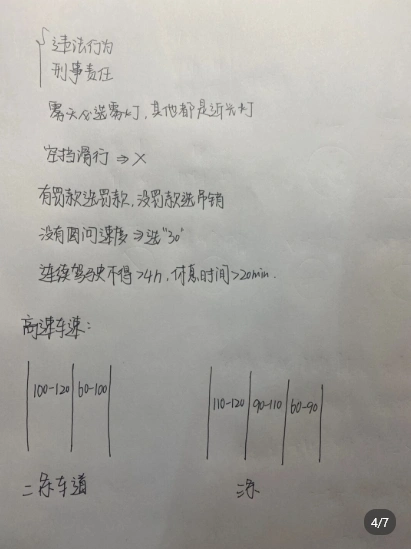 违法行为
刑事责任
雾天必选雾灯，其他都是近光灯
空挡滑行 ⇒ ×
有罚款选罚款，没罚款选吊销
没有图问速度 ⇒ 选"30"
连续驾驶不得>4h，休息时间>20min.
高速车速：
100-120 60-100
110-120 90-110 60-90
二条车道
三条
4/7